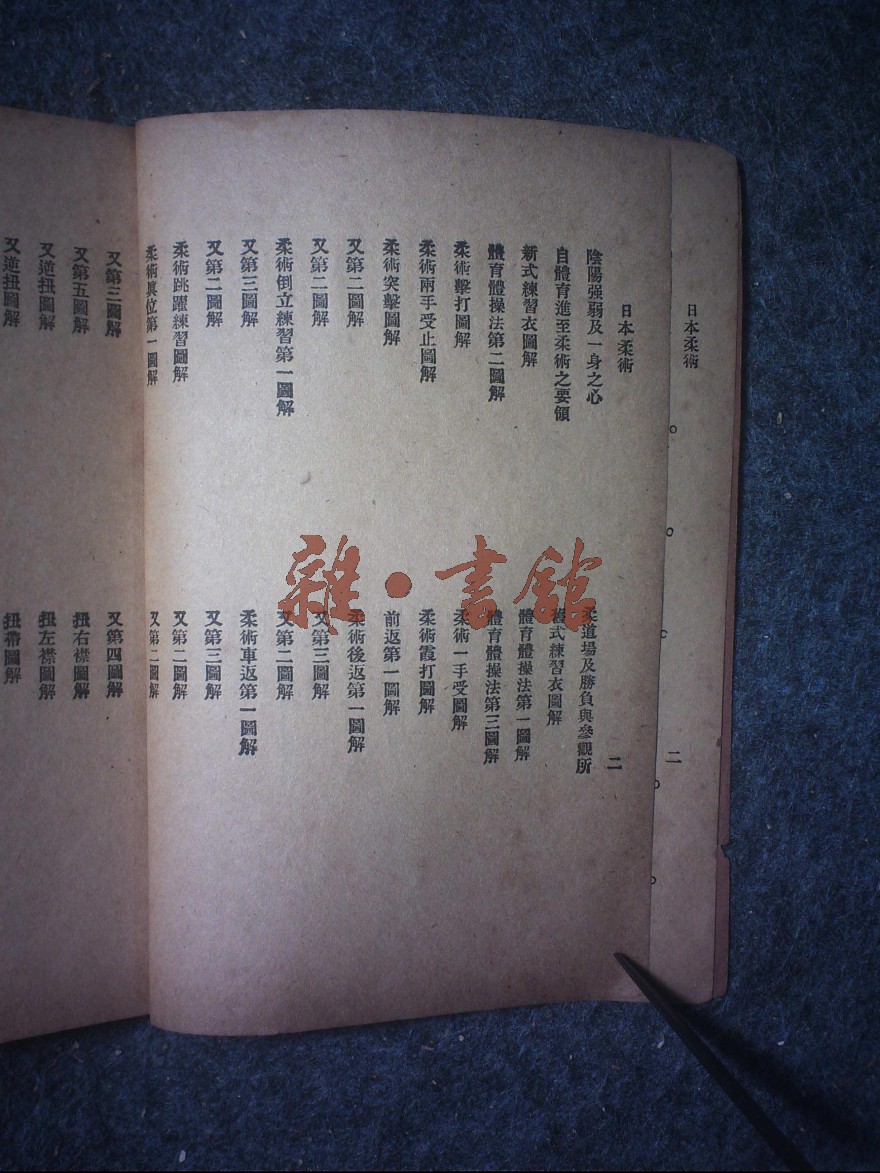 日本柔術
二
日本柔術
二
陰陽强弱及一身之心
柔道場及勝負與參觀所
自體育進至柔術之要領
舊式練習衣圖解
新式練習衣圖解
體育體操法第一圖解
體育體操法第二圖解
體育體操法第三圖解
柔術擊打圖解
柔術一手受圖解
柔術兩手受止圖解
柔術霞打圖解
柔術突擊圖解
前返第一圖解
又第二圖解
柔術後返第一圖解
又第二圖解
又第三圖解
柔術倒立練習第一圖解
又第二圖解
又第三圖解
柔術車返第一圖解
又第二圖解
又第三圖解
柔術跳躍練習圖解
又第二圖解
柔術眞位第一圖解
又第二圖解
又第三圖解
又第四圖解
又第五圖解
扭右襟圖解
又逆扭圖解
扭左襟圖解
又逆扭圖解
扭帶圖解
雜·書館